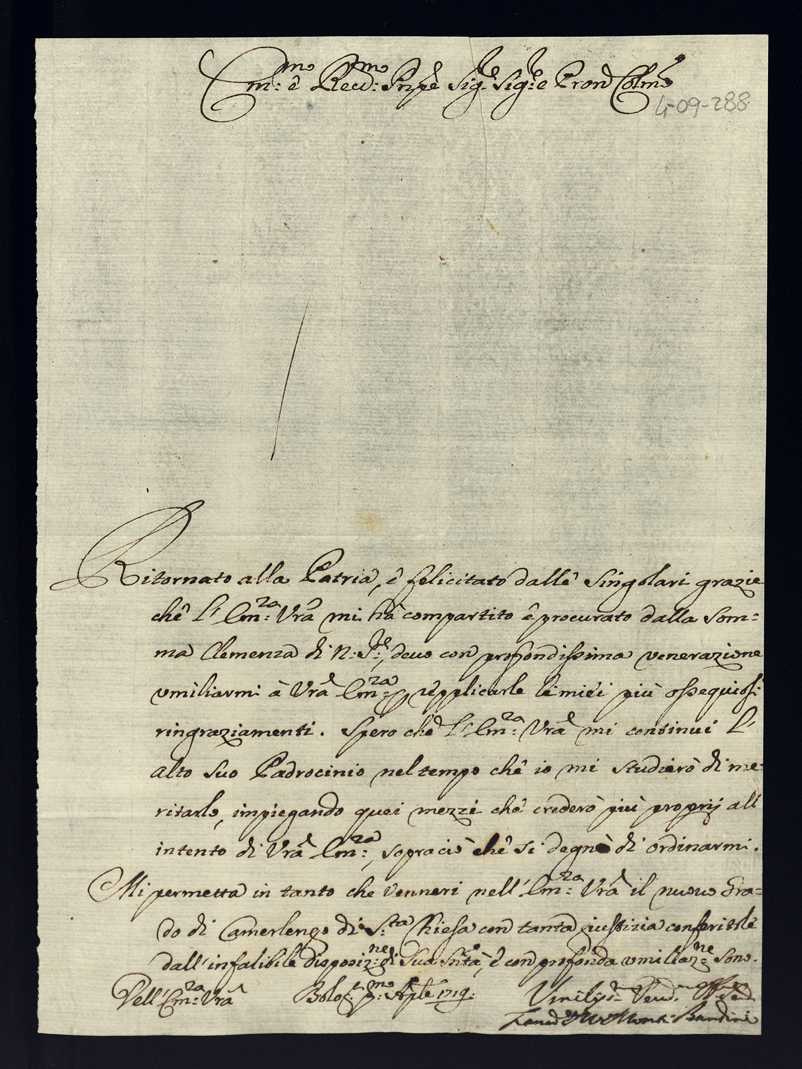 Em:mo e Reud:mo Prnpe Sig:re Sig:re e Pron Colmo
4-09-288
Ritornato alla Patria, è felicitato dallè Singolari grazie
chè l'Em:za Vra mi hà compartito è procurato dalla Som=
ma Clemenza di N: Sre, deuo con profondissima venerazione
vmiliarmi à Vra Em:za p replicarle le miei più ossequiosi
ringraziamenti. Spero chè l'Em:za Vra mi continui l'
alto suo Padrocinio nel tempo chè io mi studierò di me=
ritarlo, impiegando quei mezzi chè crederò più proprij all'
intento di Vra Em:za, sopraciò chè si degnè di ordinarmi.
Mi permetta in tanto che venneri nell'Em:za Vra il nuouo Gra=
do di Camerlengo di S:ta Chiesa con tanta giustizia conferitole
dall'infalibile disposiz:ne di Sua Sntà, è con profonda vmiliaz:ne Sono.
Dell'Em:za Vra
Bolog: p:mo Aple 1719:
Vmilis:
Bandini